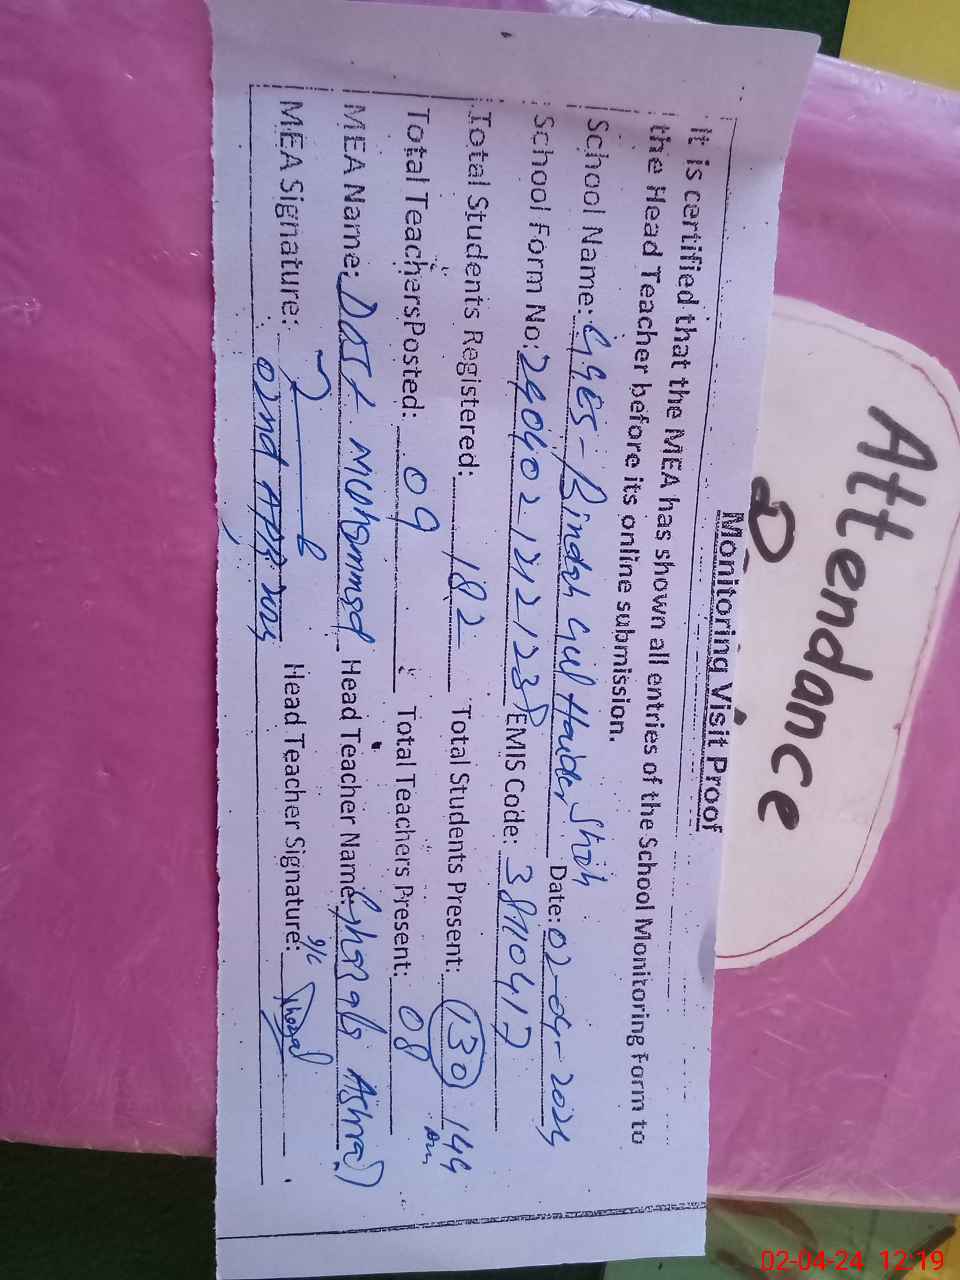 Attendance
Monitoring Visit Proof
It is certified that the MEA has shown all entries of the School Monitoring Form to
the Head Teacher before its online submission.
School Name: GGES - Bindah Gul Haider Shah Date: 02-04-2024
School Form No: EMIS Code: 38110417
Total Students Registered: 182 Total Students Present: 130 144
Total Teachers Posted: 09 Total Teachers Present: 08
MEA Name: DOST MUHAMMAD Head Teacher Name: Ghazala Ashraf
MEA Signature: Head Teacher Signature:
02nd APR 2024
02-04-24 12:19